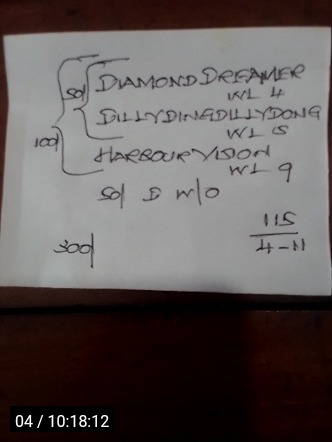 50/ DIAMOND DREAMER
WL 4
DILLYDINGDILLYDONG
WL 5
100/ HARBOUR VISION
WL 9
50/ D W/O
300/
115
4-11
04 / 10:18:12